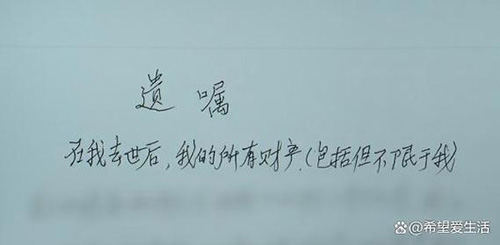 遗嘱
在我去世后，我的所有财产，（包括但不限于我）
@希望爱生活